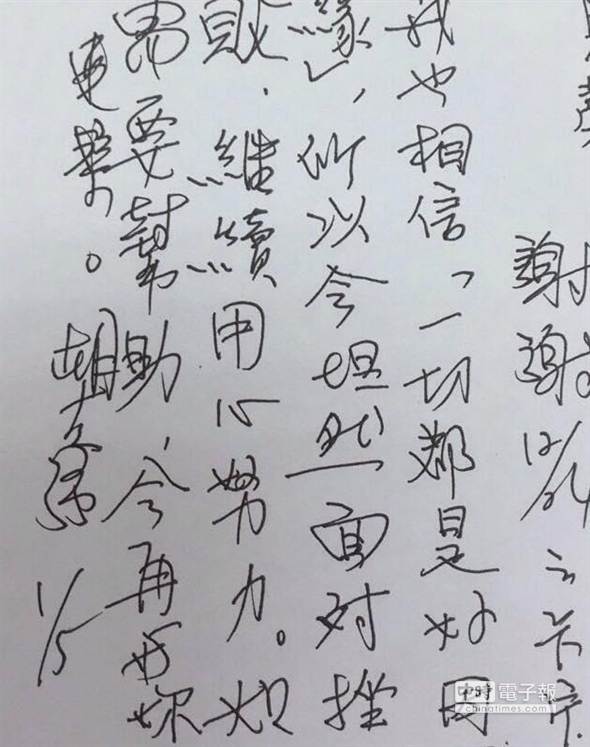 謝謝 12/24 之卡片.
我也相信「一切都是好因
緣」,所以會坦然面對挫
敗,繼續用心努力。如
需要幫助,會再與妳
連繫。 胡志強 1/5
中時電子報
chinatimes.com